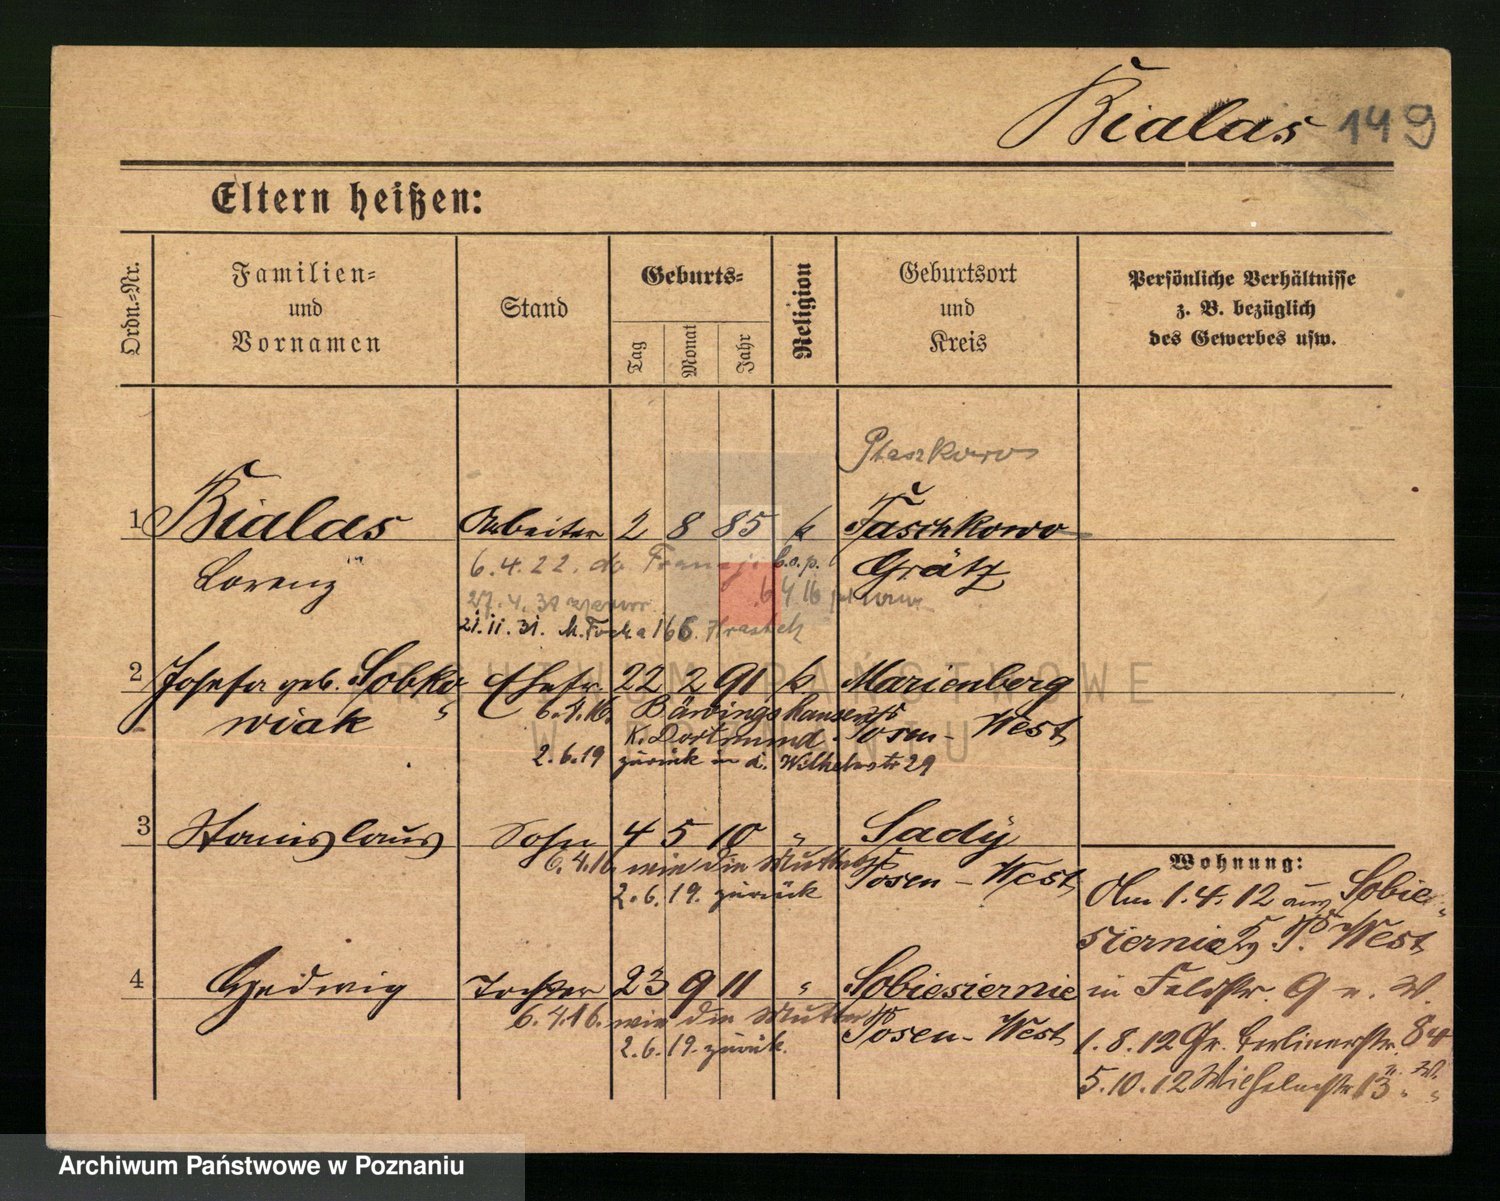 Bialas 149
Eltern heißen:
Ordn.-Nr.
Familien-
und
Vornamen
Stand
Geburts-
Tag
Monat
Jahr
Religion
Geburtsort
und
Kreis
Persönliche Verhältnisse
z. B. bezüglich
des Gewerbes usw.
Ptaszkowo
1 Bialas Arbeiter 2 8 85 k. Taschkowo
Lorenz Grätz
6.4.22. do Francji
27.4.31
21.11.31. M. Focha 166.
2 Josefa geb. Sobko Ehefr. 22 2 91 k. Marienberg
wiak Posen-West
6.4.16. Bövinghausen
K. Dortmund
2.6.19 zurück in d. Wilhelmstr 29
3 Stanislaus Sohn 4 5 10 " Sady
Posen-West
6.4.16. wie die Mutter
2.6.19. zurück
4 Hedwig Tochter 23 9 11 " Sobiesiernie
Posen-West
6.4.16. wie die Mutter
2.6.19. zurück.
Wohnung:
Am 1.4.12 aus Sobie-
siernie Ps West
in Feldstr. 9 n. W.
1.8.12 Gr. Berlinerstr. 84
5.10.12 Wilhelmstr 13 " "
ARCHIWUM PAŃSTWOWE
W POZNANIU
Archiwum Państwowe w Poznaniu